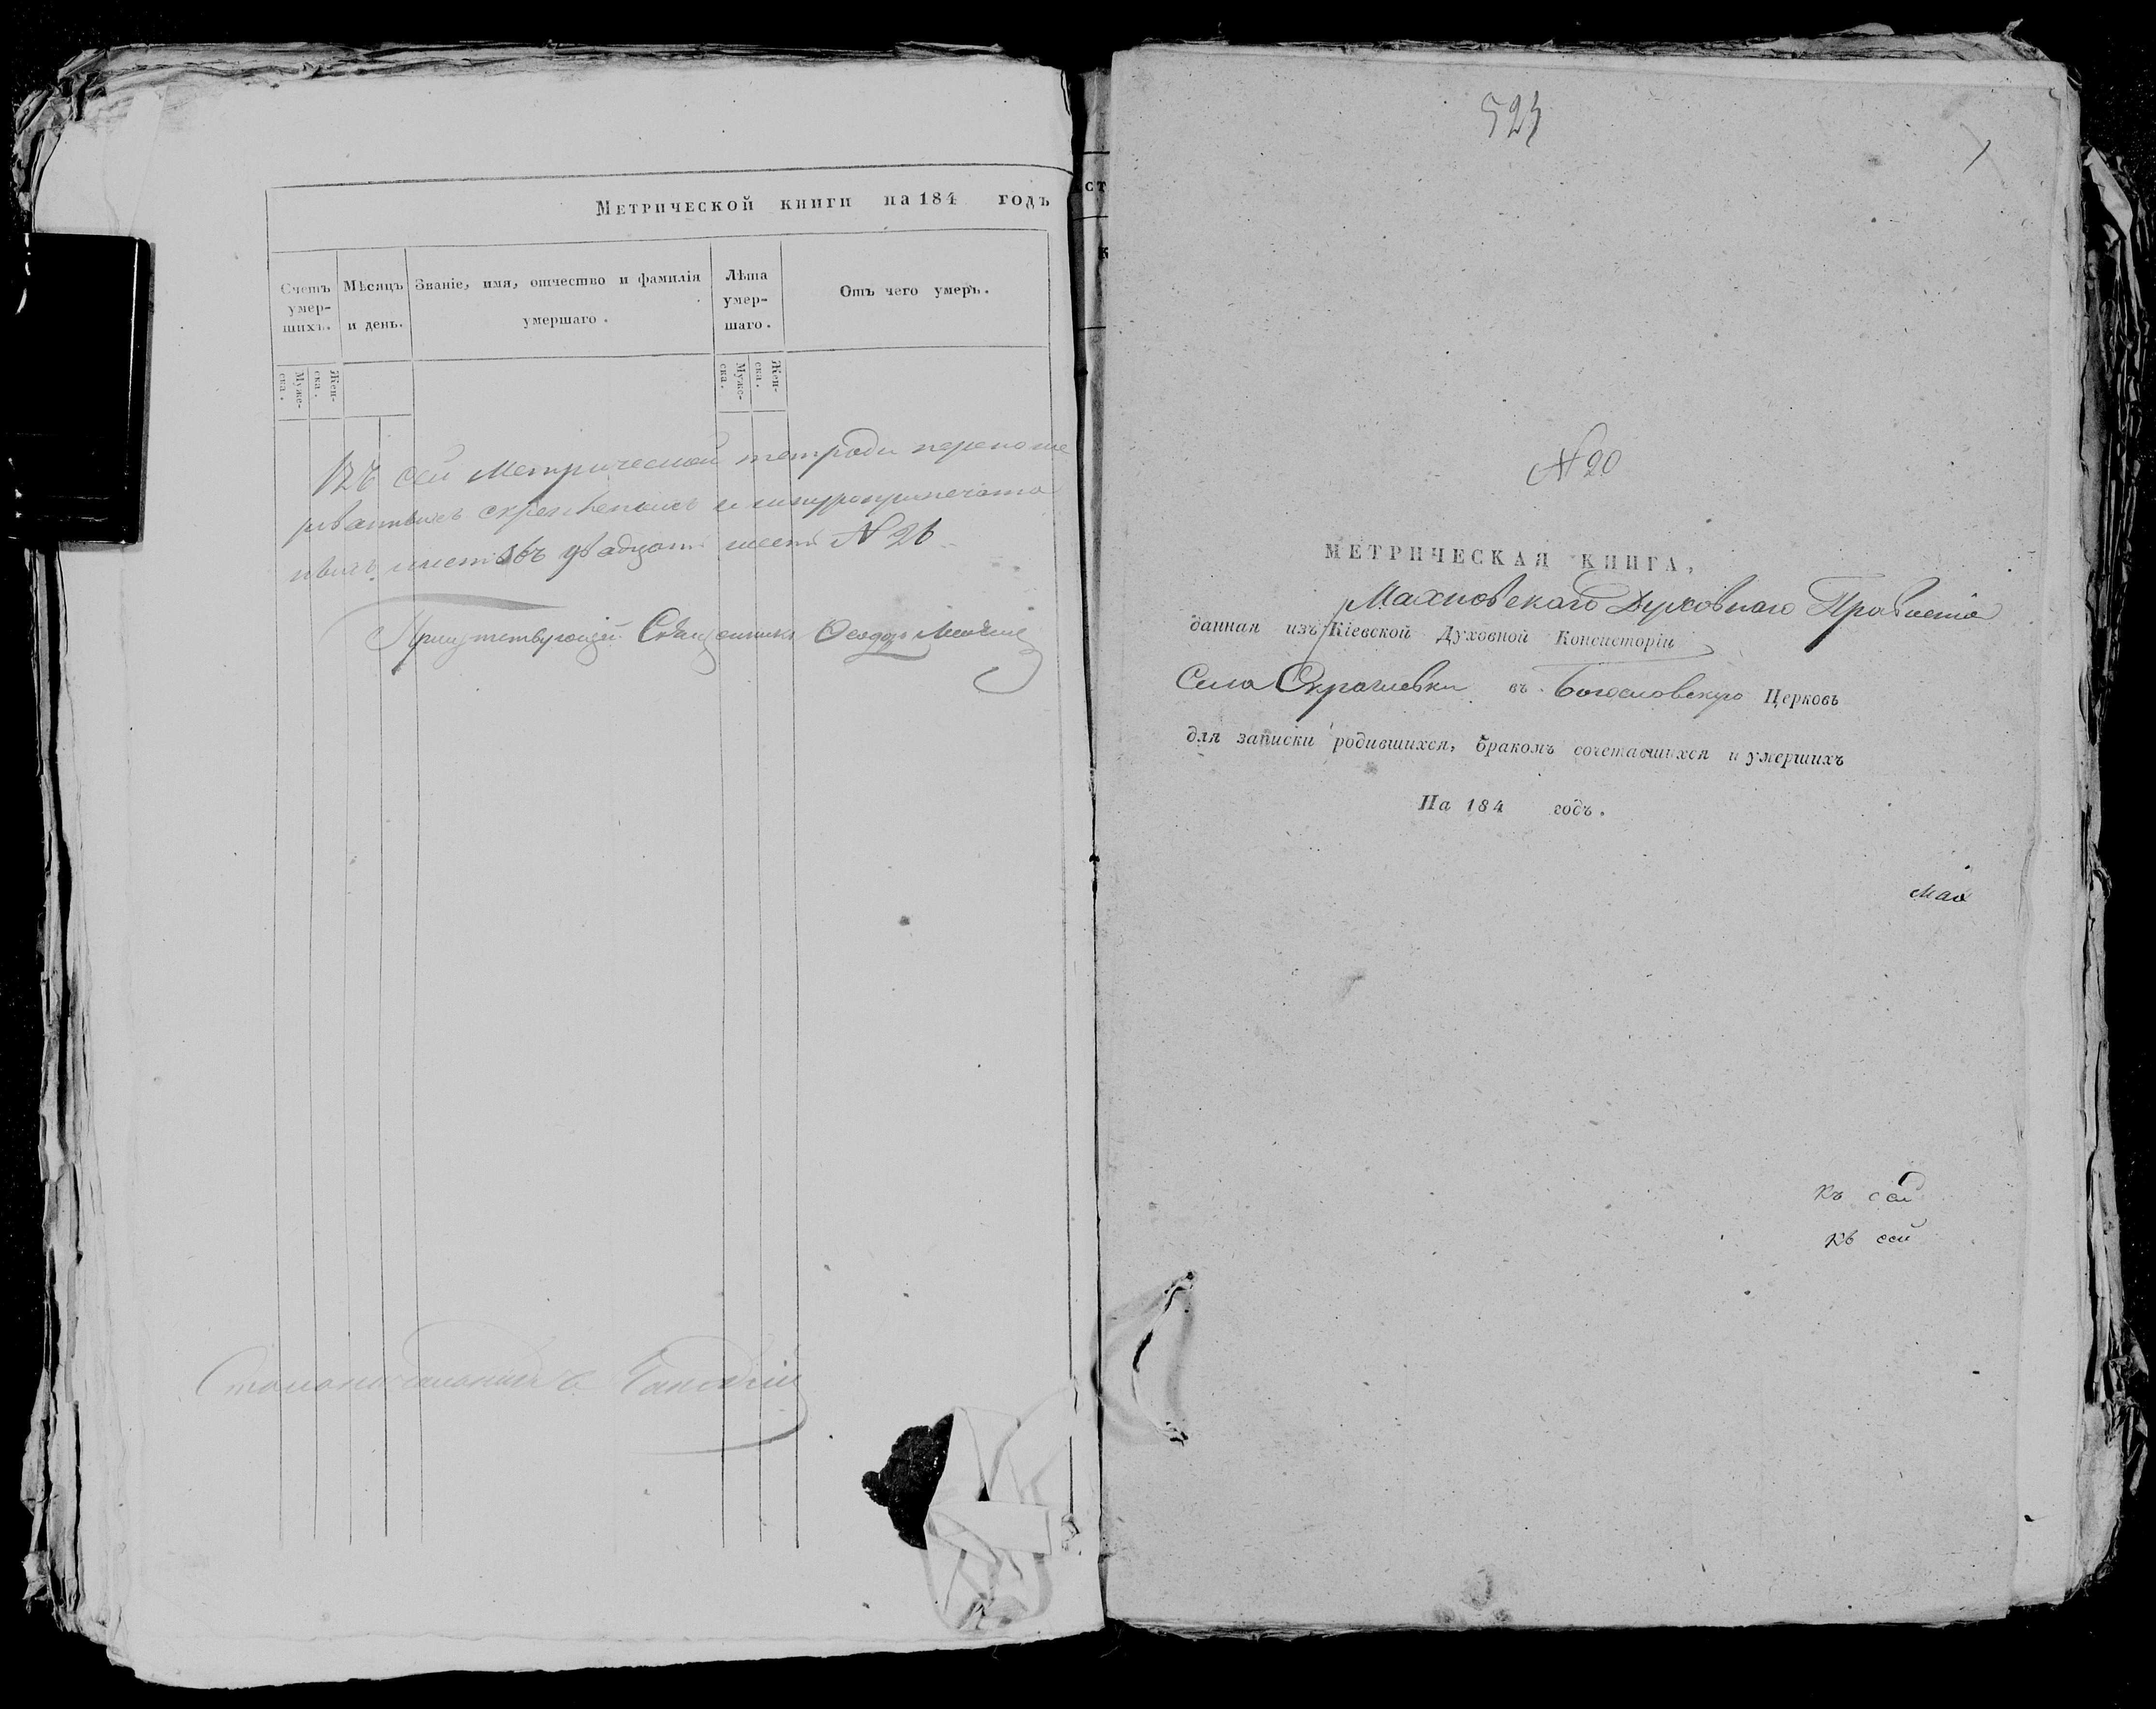 Метрической книги на 184 годъ
Счетъ умер-шихъ.
Мѣсяцъ и день.
Званіе, имя, отчество и фамилія умершаго.
Лѣта умер-шаго.
Отъ чего умеръ.
Муже-ска.
Жен-ска.
Муже-ска.
Жен-ска.
Въ сей Метрической тетради перенуме
рватныхъ скрѣпленныхъ и шнуроприпечата
ныхъ листовъ двадцать шесть N 26
Присутствующій Священникъ Ѳеодоръ
Столоначальникъ
523
N 20
МЕТРИЧЕСКАЯ КНИГА,
Махновскаго Духовнаго Правленія
данная изъ Кіевской Духовной Консисторіи
Села Скраглевки въ Богословскую Церковь
для записки родившихся, бракомъ сочетавшихся и умершихъ
На 184 годъ.
Мах
Къ сей
Къ сей